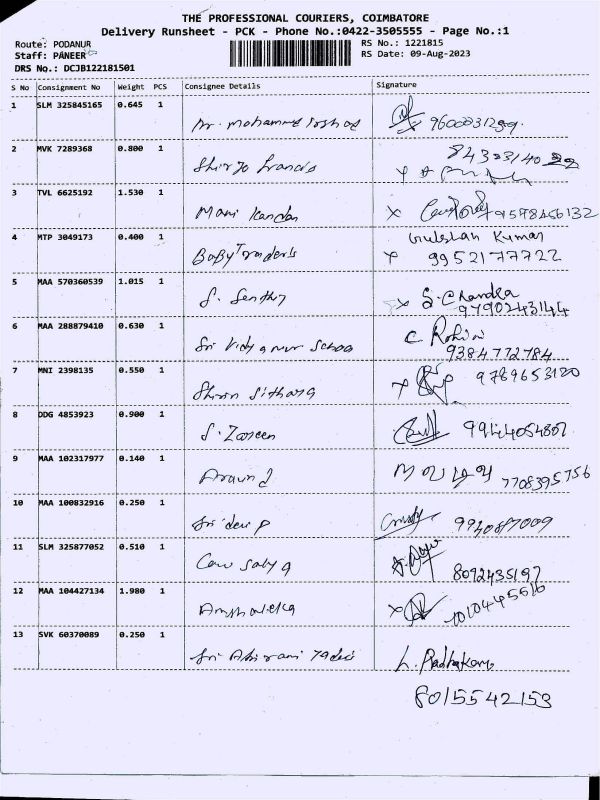 THE PROFESSIONAL COURIERS, COIMBATORE
Delivery Runsheet - PCK - Phone No.:0422-3505555 - Page No.:1
Route: PODANUR RS No.: 1221815
Staff: PANEER RS Date: 09-Aug-2023
DRS No.: DCJB122181501
S No Consignment No Weight PCS Consignee Details Signature
1 SLM 325845165 0.645 1
2 MVK 7289368 0.800 1
3 TVL 6625192 1.530 1 Mani Kandan 9578456132
4 MTP 3049173 0.400 1 Baby Traders Gulshan Kumar
9952177722
5 MAA 570360539 1.015 1 S. Senthi S. Chandra
9790243144
6 MAA 288879410 0.630 1 Sri C. Rohini
9384772784
7 MNI 2398135 0.550 1 9789653120
8 DDG 4853923 0.900 1 S. Zareen 9944054807
9 MAA 102317977 0.140 1 Aravind 7708395756
10 MAA 100832916 0.250 1 Sri devi P 9940687009
11 SLM 325877052 0.510 1 8092435197
12 MAA 104427134 1.980 1
13 SVK 60370089 0.250 1 Sri Abirami
8015542153